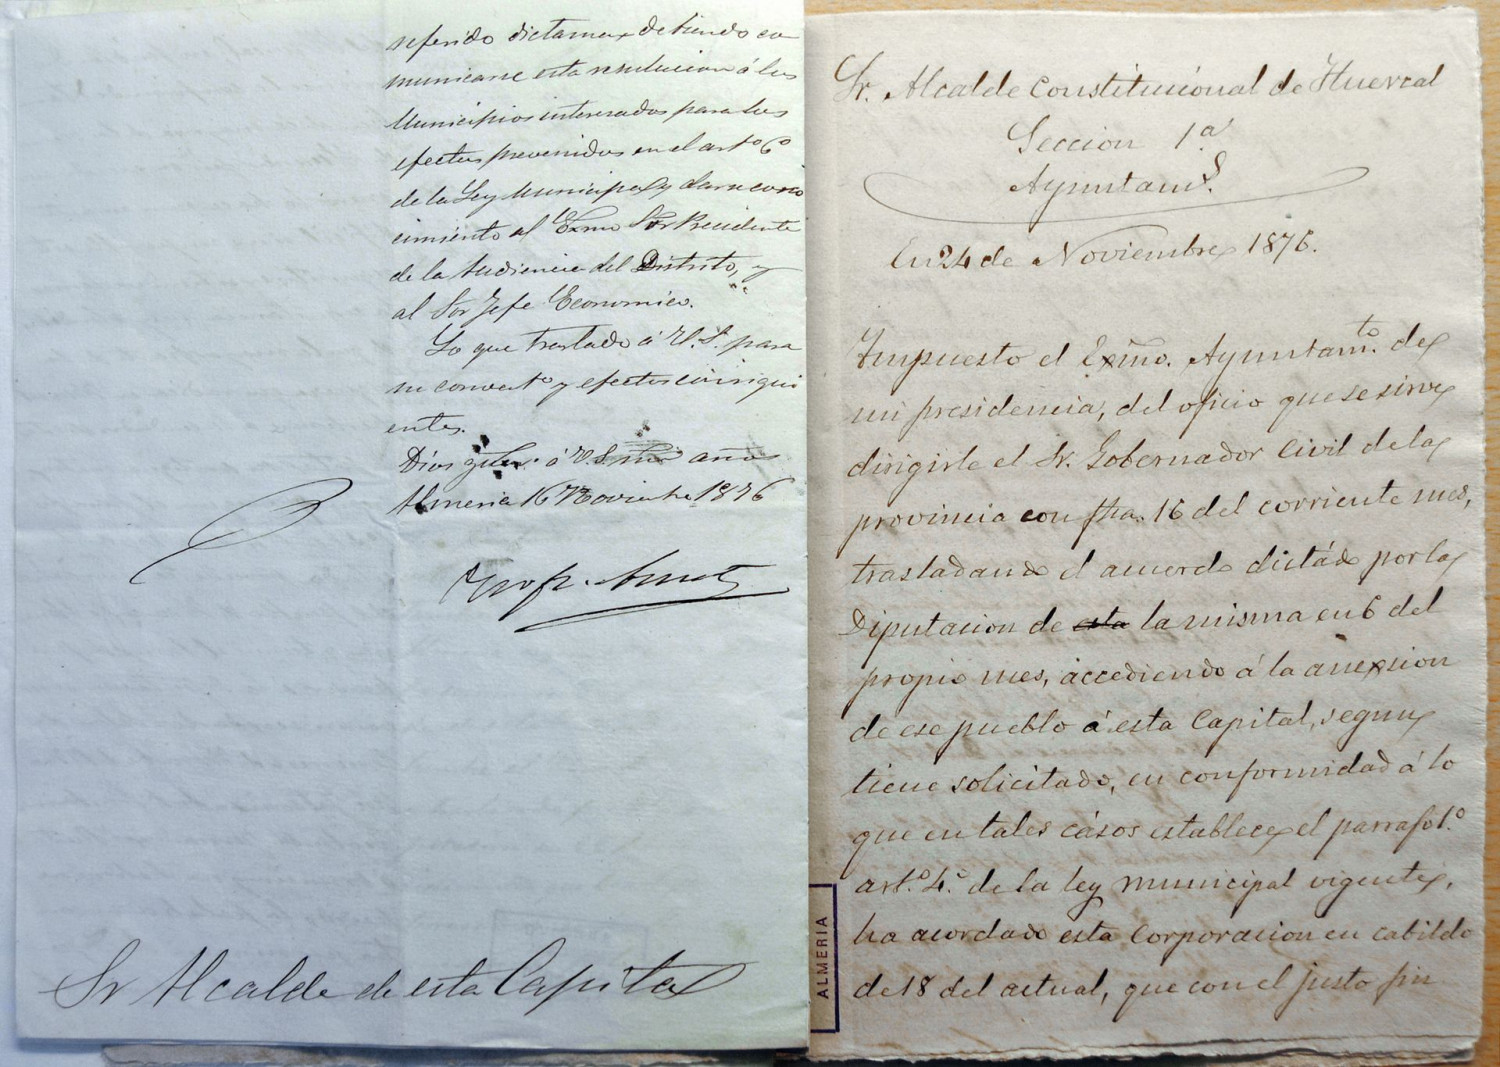 referido dictamen debiendo co
municarse esta resolucion á los
Municipios interesados para los
efectos prevenidos en el artº 6º
de la Ley Municipal y darse cono
cimiento al Exmo Sor Presidente
de la Audiencia del Distrito, y
al Sor Jefe Economico.
Lo que traslado á V.S. para
su conocimtº y efectos consigui
entes.
Dios gue. á V.S. ms. años
Almeria 16 Noviembre 1876
Sr Alcalde de esta Capital
Sr. Alcalde Constitucional de Huercal
Seccion 1.ª
Ayuntams.
En 24 de Noviembre 1876.
Impuesto el Exmo. Ayuntamto. de
mi presidencia, del oficio que se sirve
dirigirle el Sr. Gobernador Civil de la
provincia con fha. 16 del corriente mes,
trasladando el acuerdo dictádo por la
Diputacion de esta la misma en 6 del
propio mes, accediendo á la anexsion
de ese pueblo á esta Capital, segun
tiene solicitado, en conformidad á lo
que en tales cásos establece el parrafo 1.º
art.º 4.º de la ley municipal vigente,
ha acordado esta Corporacion en cabildo
de 18 del actual, que con el justo fin
ALMERIA